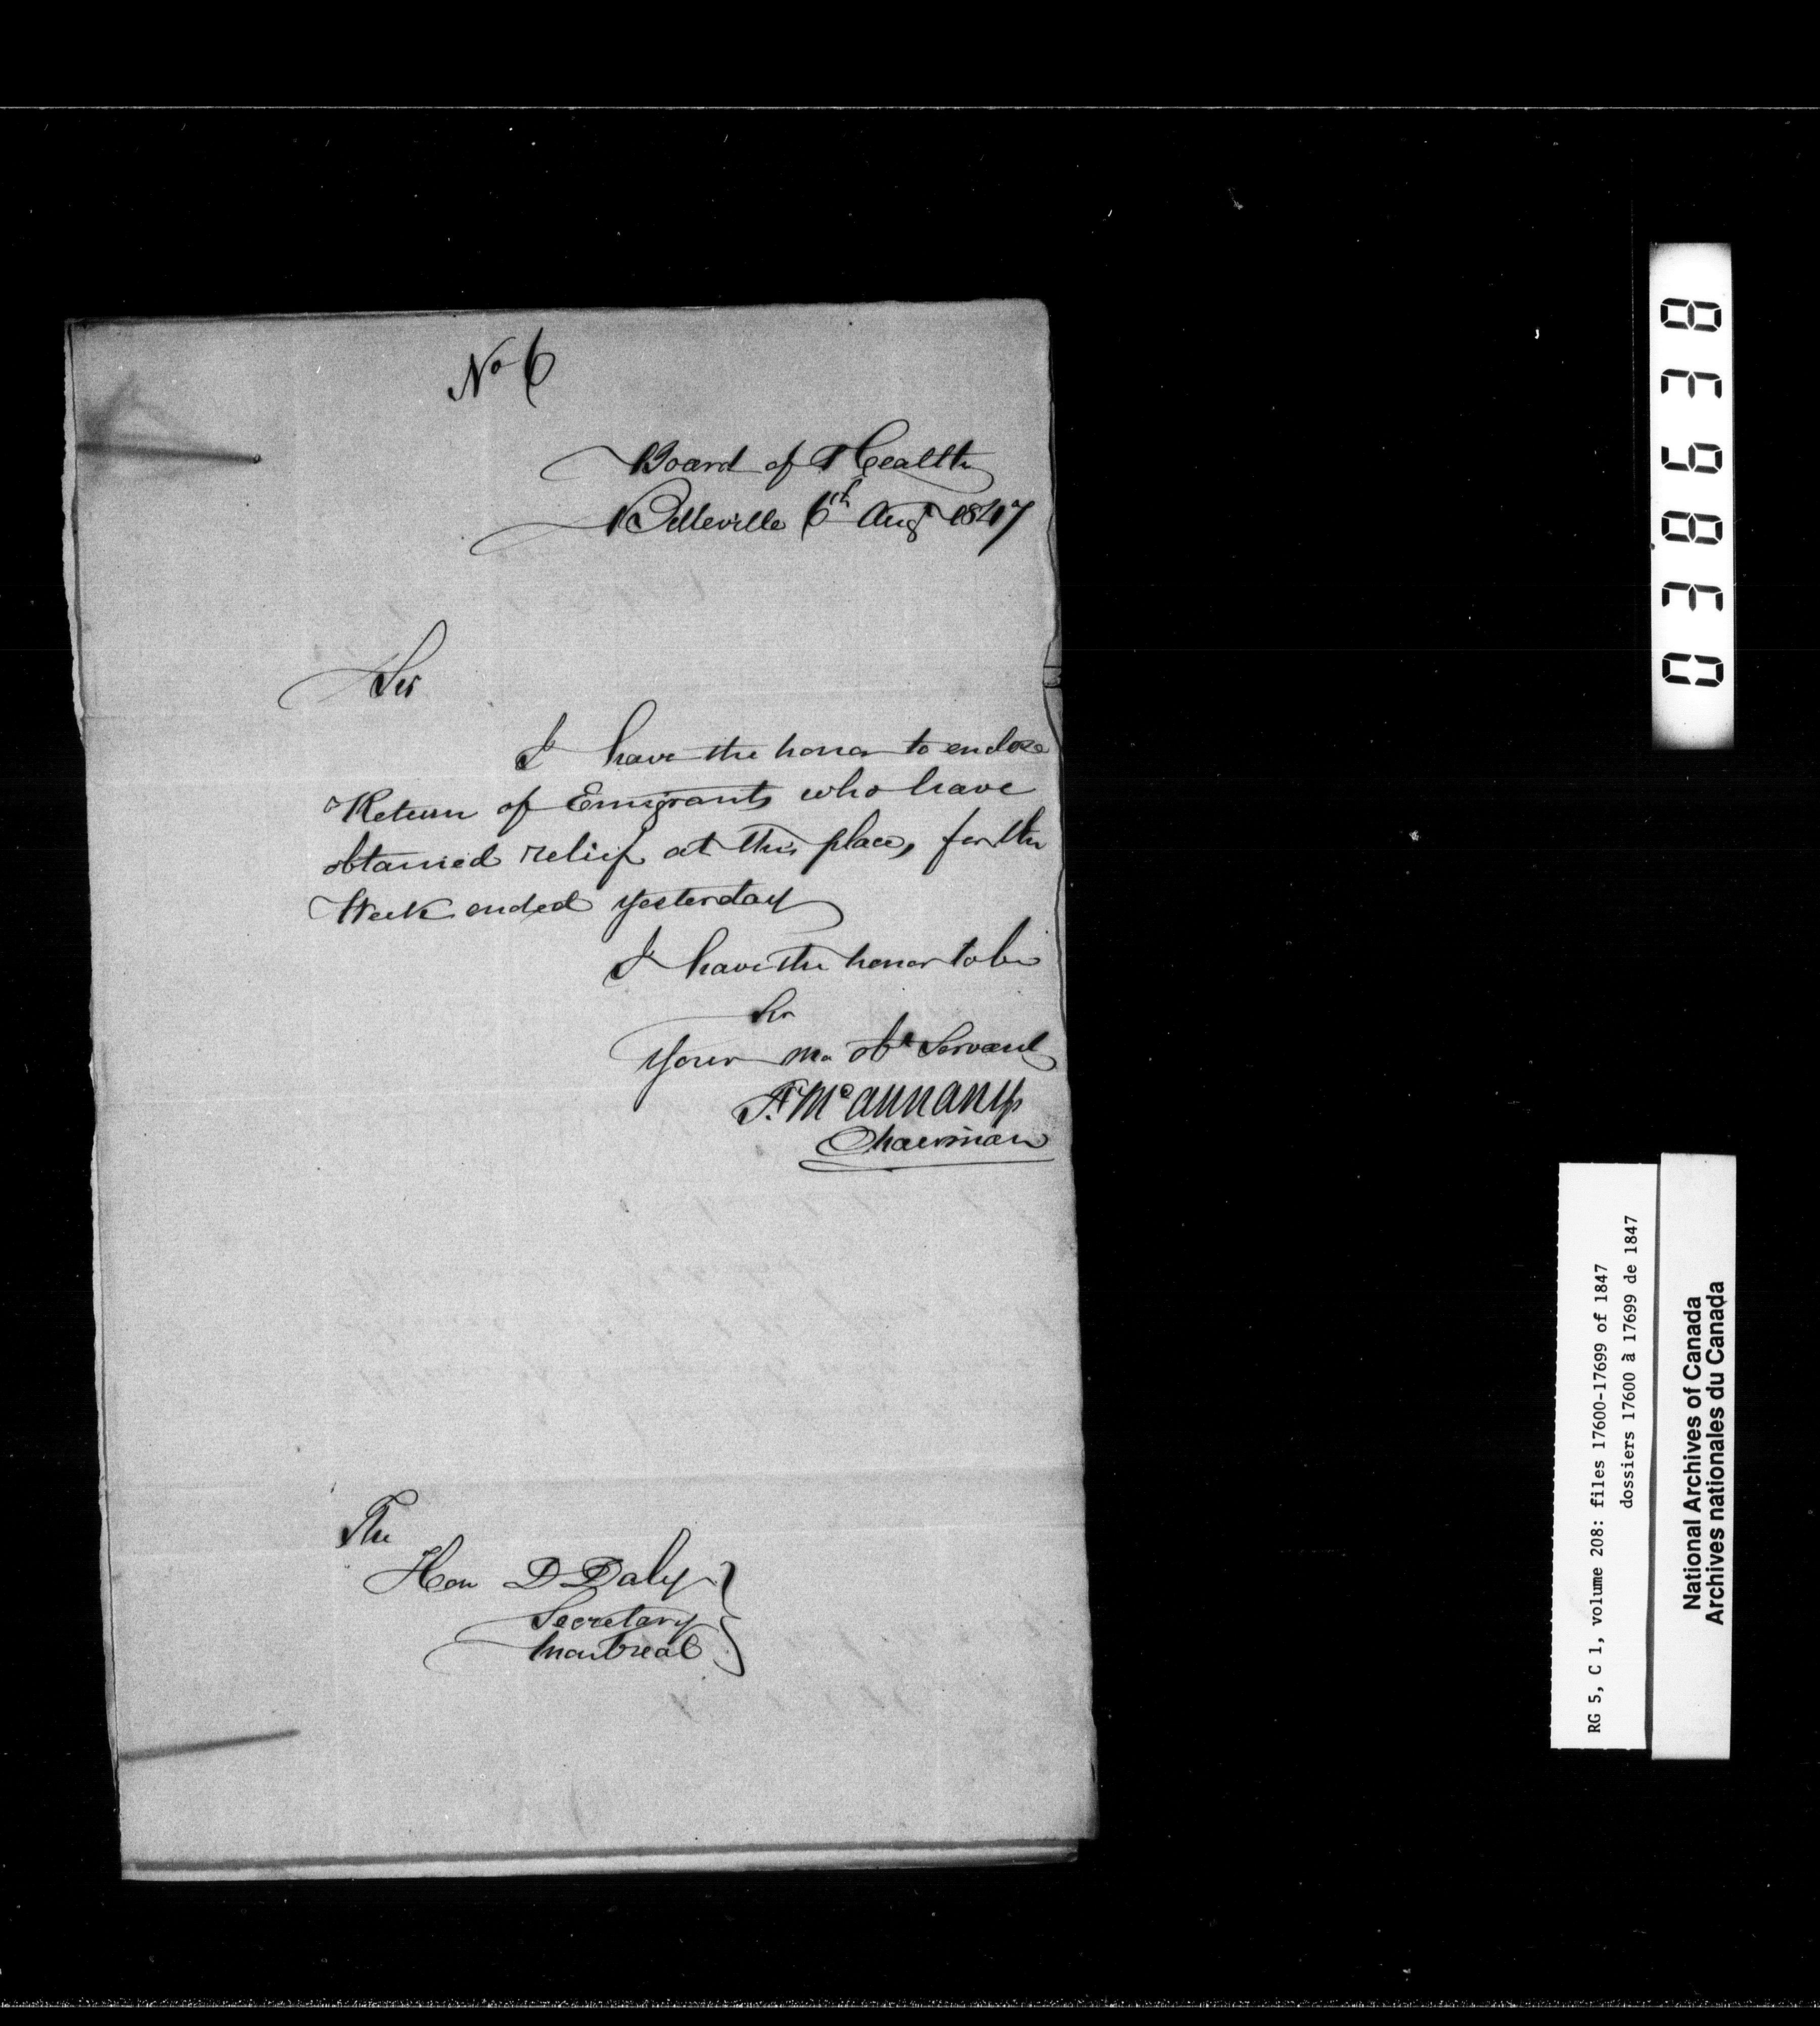 No 6
Board of Health
Belleville 6th Augt 1847
Sir
I have the honor to enclose
Return of Emigrants who have
obtained relief at this place, for the
Week ended yesterday
I have the honor to be
Sir
Your mo obt Servant
F. McAnnany
Chairman
The
Hon D Daly
Secretary
Montreal
038638
RG 5, C 1, volume 208: files 17600-17699 of 1847
dossiers 17600 à 17699 de 1847
National Archives of Canada
Archives nationales du Canada